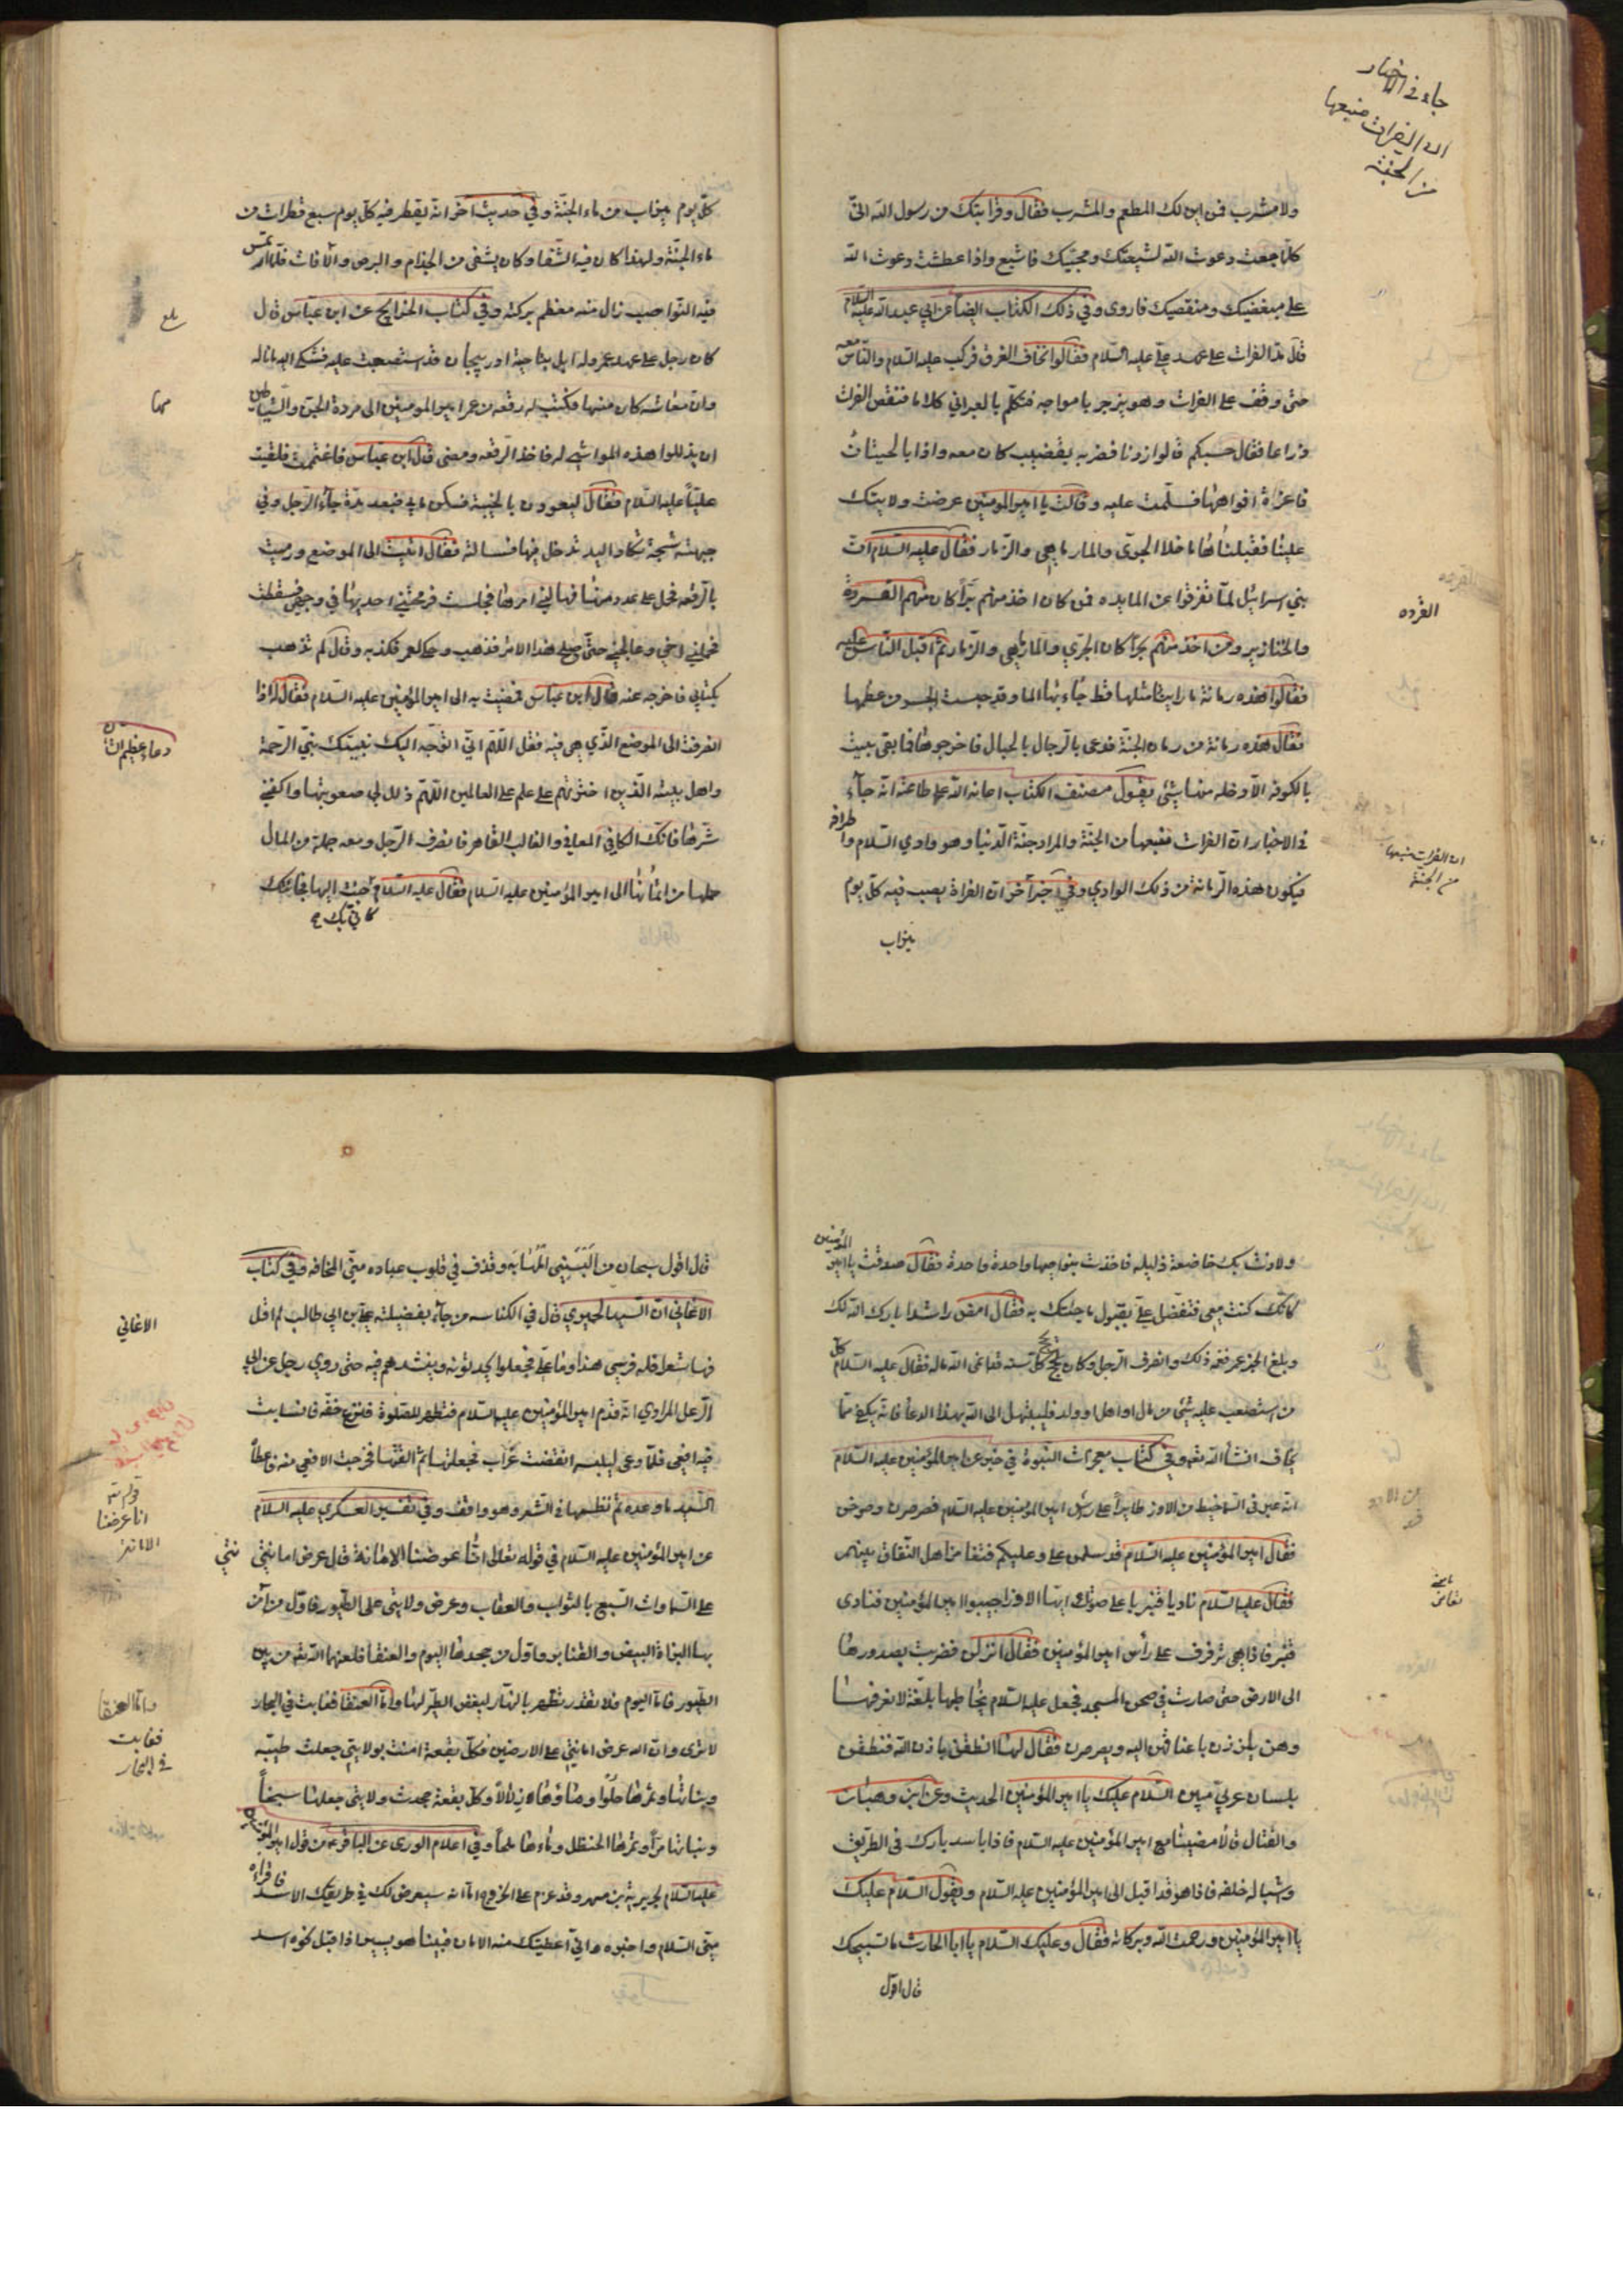 جاء في الاخبار
ان الفرات منبعها
من الجنة
ولا مشرب فمن اين لك المطعم والمشرب فقال وقرابتك من رسول الله اني
كلما جعت دعوت الله لشيعتك ومحبيك فاشبع واذا عطشت دعوت الله
على مبغضيك ومنقصيك فاروى وفي ذلك الكتاب ايضا عن ابي عبد الله عليه السلام
قال مد الفرات على عهد علي عليه السلام فقالوا نخاف الغرق فركب عليه السلام والناس معه
حتى وقف على الفرات وهو يزجر بامواجه فتكلم بالعبراني كلاما فنقص الفرات
ذراعا فقال حسبكم قالوا زدنا فضربه بقضيب كان معه واذا بالحيتان
فاغرة افواهها فسلمت عليه وقالت يا امير المومنين عرضت ولايتك
علينا فقبلناها ما خلا الجري والمارماهي والزمار فقال عليه السلام ان
بني اسرائيل لما تفرقوا عن المايده فمن كان اخذ منهم برا كان منهم القردة
والخنازير ومن اخذ منهم بحرا كان الجري والمارماهي والزمار ثم اقبل الناس عليه
فقالوا هذه رمانة ما راينا مثلها قط جاء بها الما وقد حبست الجسر من عظمها
فقال هذه رمانة من رمان الجنة فدعى بالرجال بالحبال فاخرجوها فما بقى بيت
بالكوفه الا دخله منها شئ يقول مصنف الكتاب اعانه الله على طاعته انه جاء
في الاخبار ان الفرات منبعها من الجنة والمراد جنة الدنيا وهو وادي السلام واطرافه
فيكون هذه الرمانة من ذلك الوادي وفي اخبار اخر ان الفراة يصب فيه كل يوم
ميزاب
القرده
ان الفرات منبعها
من الجنة
كل يوم ميزاب من ماء الجنة وفي حديث اخر انه يقطر فيه كل يوم سبع قطرات من
ماء الجنة ولهذا كان فيه الشفا وكان يشفى من الجذام والبرص والافات فلما تمس
فيه النواصب زال منه معظم بركته وفي كتاب الخرايج عن ابن عباس قال
كان رجل على عهد عمر وله ابل بناحية اذربيجان قد استصعبت عليه فشكى اليه ماناله
وان معاشه كان منها فكتب له رقعه من عمر امير المومنين الى مردة الجن والشياطين
ان يذللوا هذه المواشي له فاخذ الرقعه ومضى قال ابن عباس فاغتممت فلقيت
عليا عليه السلام فقال ليعودن بالخيبة فسكن مابي فبعد مدة جاء الرجل وفي
جبهته شجة تكاد اليد تدخل فيها فسالته فقال اتيت الى الموضع ورميت
بالرقعه فحمل على عدد منها فهالني امرها فجلست فرمحتني احديها في وجهي فسقطت
فحملني اخي وعالجني حتى صلح هذا الامر فذهب وحكى لعمر فكذبه وقال لم تذهب
بكتابي فاخرجه عنه قال ابن عباس فمضيت به الى امير المؤمنين عليه السلام فقال له اذا
انصرفت الى الموضع الذي هي فيه فقل اللهم اني اتوجه اليك بنبيك نبي الرحمة
واهل بيته الذين اخترتهم على علم على العالمين اللهم ذلل لي صعوبتها واكفني
شرها فانك الكافي المعافي والغالب القاهر فانصرف الرجل ومعه جملة من المال
حملها من اثمانها الى امير المؤمنين عليه السلام فقال عليه السلام جئت اليها فجائتك
كاني بك
بلغ
دعاء عظيم الشان
ولاذت بك خاضعة ذليله فاخذت بنواصيها واحدة واحدة فقال صدقت يا امير المؤمنين
كانك كنت معي فتفضل علي بقبول ما جئتك به فقال امض راشدا بارك الله لك
وبلغ الخبر عمر فغمه ذلك وانصرف الرجل وكان يحج كل سنة فقد انمى الله ماله فقال عليه السلام كل
من استصعب عليه شئ من مال او اهل او ولد فليبتهل الى الله بهذا الدعا فانه يكفى مما
يخاف انشأ الله تعه وفي كتاب معجزات النبوة في خبر عن امير المؤمنين عليه السلام
انه عبر في السما خيط من الاوز طايرا على راس امير المومنين عليه السلام فصرصرن وصرخن
فقال امير المؤمنين عليه السلام قد سلمن علي وعليكم فتغامز اهل النفاق بينهم
فقال عليه السلام ناد يا قنبر باعلى صوتك ايها الاوز اجيبوا امير المؤمنين فنادى
قنبر فاذا هي ترفرف على رأس امير المومنين فقال انزلن فضربت بصدورها
الى الارض حتى صارت في صحن المسجد فجعل عليه السلام يخاطبها بلغة لا نعرفها
وهن يلززن باعناقهن اليه ويصرصرن فقال لهن انطقن باذن الله فنطقن
بلسان عربي مبين السلام عليك يا امير المؤمنين الحديث وعن ابن وهبان
والفتال قالا مضينا مع امير المؤمنين عليه السلام فاذا باسد بارك في الطريق
وشباله خلفه فاذا هو قد اقبل الى امير المؤمنين عليه السلام ويقول السلام عليك
يا امير المؤمنين ورحمت الله وبركاته فقال وعليك السلام يا ابا الحارث ما تسبيحك
قال اقول
قال اقول سبحان من البسني المهابه وقذف في قلوب عباده مني المخافه وفي كتاب
الاغاني ان السيد الحميري قال في الكناسه من جاء بفضيلة علي بن ابي طالب لم اقل
فيها شعرا فله فرسي هذا وما علي فجعلوا يحدثونه وينشدهم فيه حتى روي رجل عن ابي
الزعل المرادي انه قدم امير المؤمنين عليه السلام فتطهر للصلوة فنزع خفه فانسابت
فيه افعى فلما دعى ليلبسه انقضت غراب فحملتها ثم القتها فخرجت الافعى منه فاعطاه
السيد ما وعده ثم نظمها في الشعر وهو واقف وفي تفسير العسكري عليه السلام
عن امير المؤمنين عليه السلام في قوله تعالى انا عرضنا الامانة قال عرض امانتي
على السماوات السبع بالثواب والعقاب وعرض ولايتي على الطيور فاول من آمن
بها البزاة البيض والقنابر واول من جحدها البوم والعنقا فلعنهما الله تعه من بين
الطيور فاما البوم فلا تقدر تظهر بالنهار لبغض الطير لها واما العنقا فغابت في البحار
لا ترى وان الله عرض امانتي على الارضين فكل بقعة امنت بولايتي جعلت طيبه
ونباتها وثمرها حلوا وماؤها زلالا وكل بقعة جحدت ولايتي جعلها سبخا
ونباتها مرا وثمرها الحنظل وماءها ملحا وفي اعلام الورى عن الباقر ع من قول امير المؤمنين
عليه السلام لجويرية بن مسهر وقد عزم على الخروج اما انه سيعرض لك في طريقك الاسد فاقراه
مني السلام واخبره اني اعطيتك منه الامان فبينا هو يسير اذا قبل نحوه اسد
الاغاني
قوله تعه
انا عرضنا
الامانة
واما العنقا
فغابت
في البحار